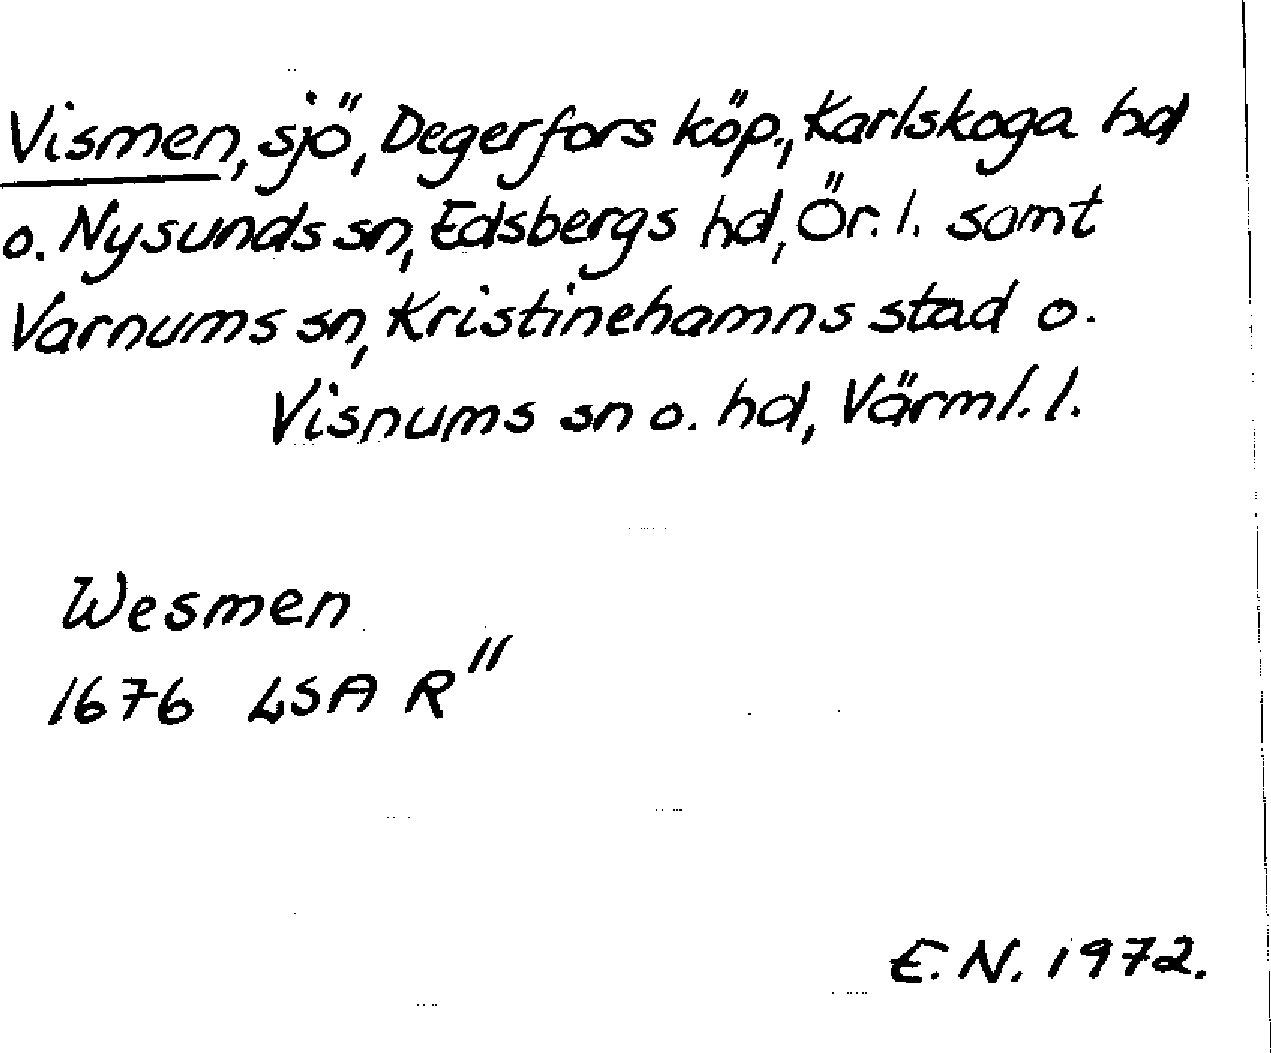 Vismen, sjö, Degerfors köp., Karlskoga hd
o. Nysunds sn, Edsbergs hd, Ör. l. samt
Varnums sn, Kristinehamns stad o.
Visnums sn o. hd, Värml. l.
Wesmen
1676 LSA R"
E. N. 1972.